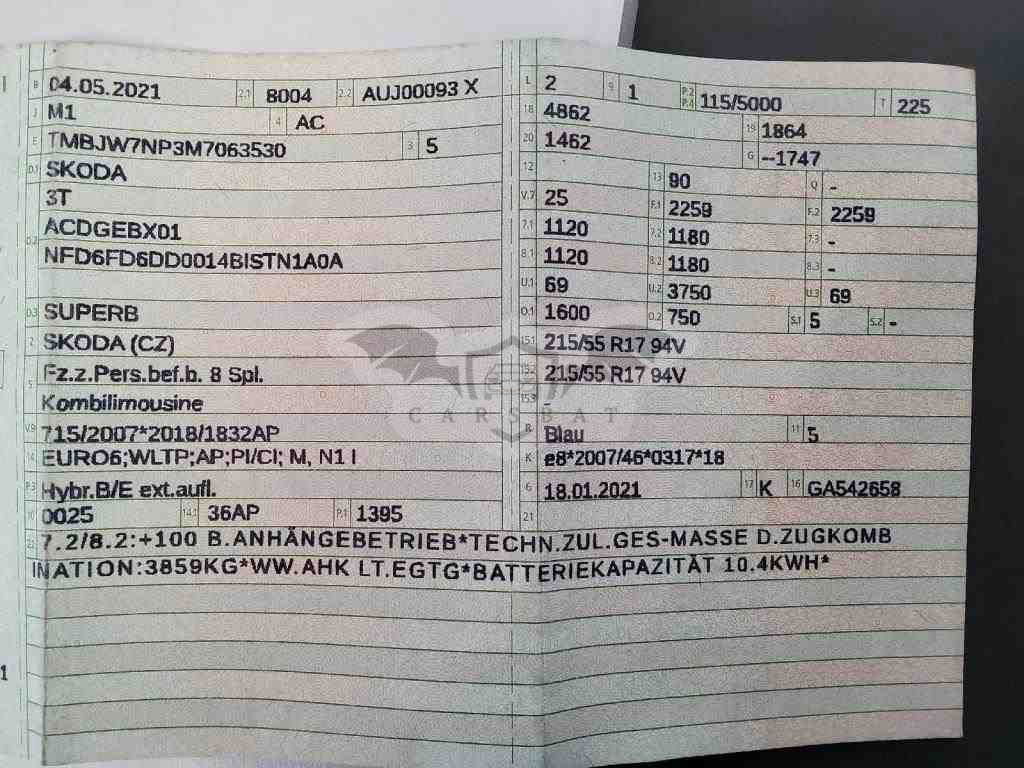 B 04.05.2021 2.1 8004 2.2 AUJ00093 X
J M1 4 AC
E TMBJW7NP3M7063530 3 5
D.1 SKODA
3T
D.2 ACDGEBX01
NFD6FD6DD0014BISTN1A0A
D.3 SUPERB
2 SKODA (CZ)
5 Fz.z.Pers.bef.b. 8 Spl.
Kombilimousine
V.9 715/2007*2018/1832AP
14 EURO6;WLTP;AP;PI/CI; M, N1 I
P.3 Hybr.B/E ext.aufl.
10 0025 14.1 36AP P.1 1395
L 2 9 1 P.2 P.4 115/5000 T 225
18 4862 19 1864
20 1462 G --1747
12 13 90 Q -
V.7 25 F.1 2259 F.2 2259
7.1 1120 7.2 1180 7.3 -
8.1 1120 8.2 1180 8.3 -
U.1 69 U.2 3750 U.3 69
O.1 1600 O.2 750 S.1 5 S.2 -
15.1 215/55 R17 94V
15.2 215/55 R17 94V
15.3 -
R Blau 11 5
K e8*2007/46*0317*18
6 18.01.2021 17 K 16 GA542658
21
22 7.2/8.2:+100 B.ANHÄNGEBETRIEB*TECHN.ZUL.GES-MASSE D.ZUGKOMB
INATION:3859KG*WW.AHK LT.EGTG*BATTERIEKAPAZITÄT 10.4KWH*
CARSBAT